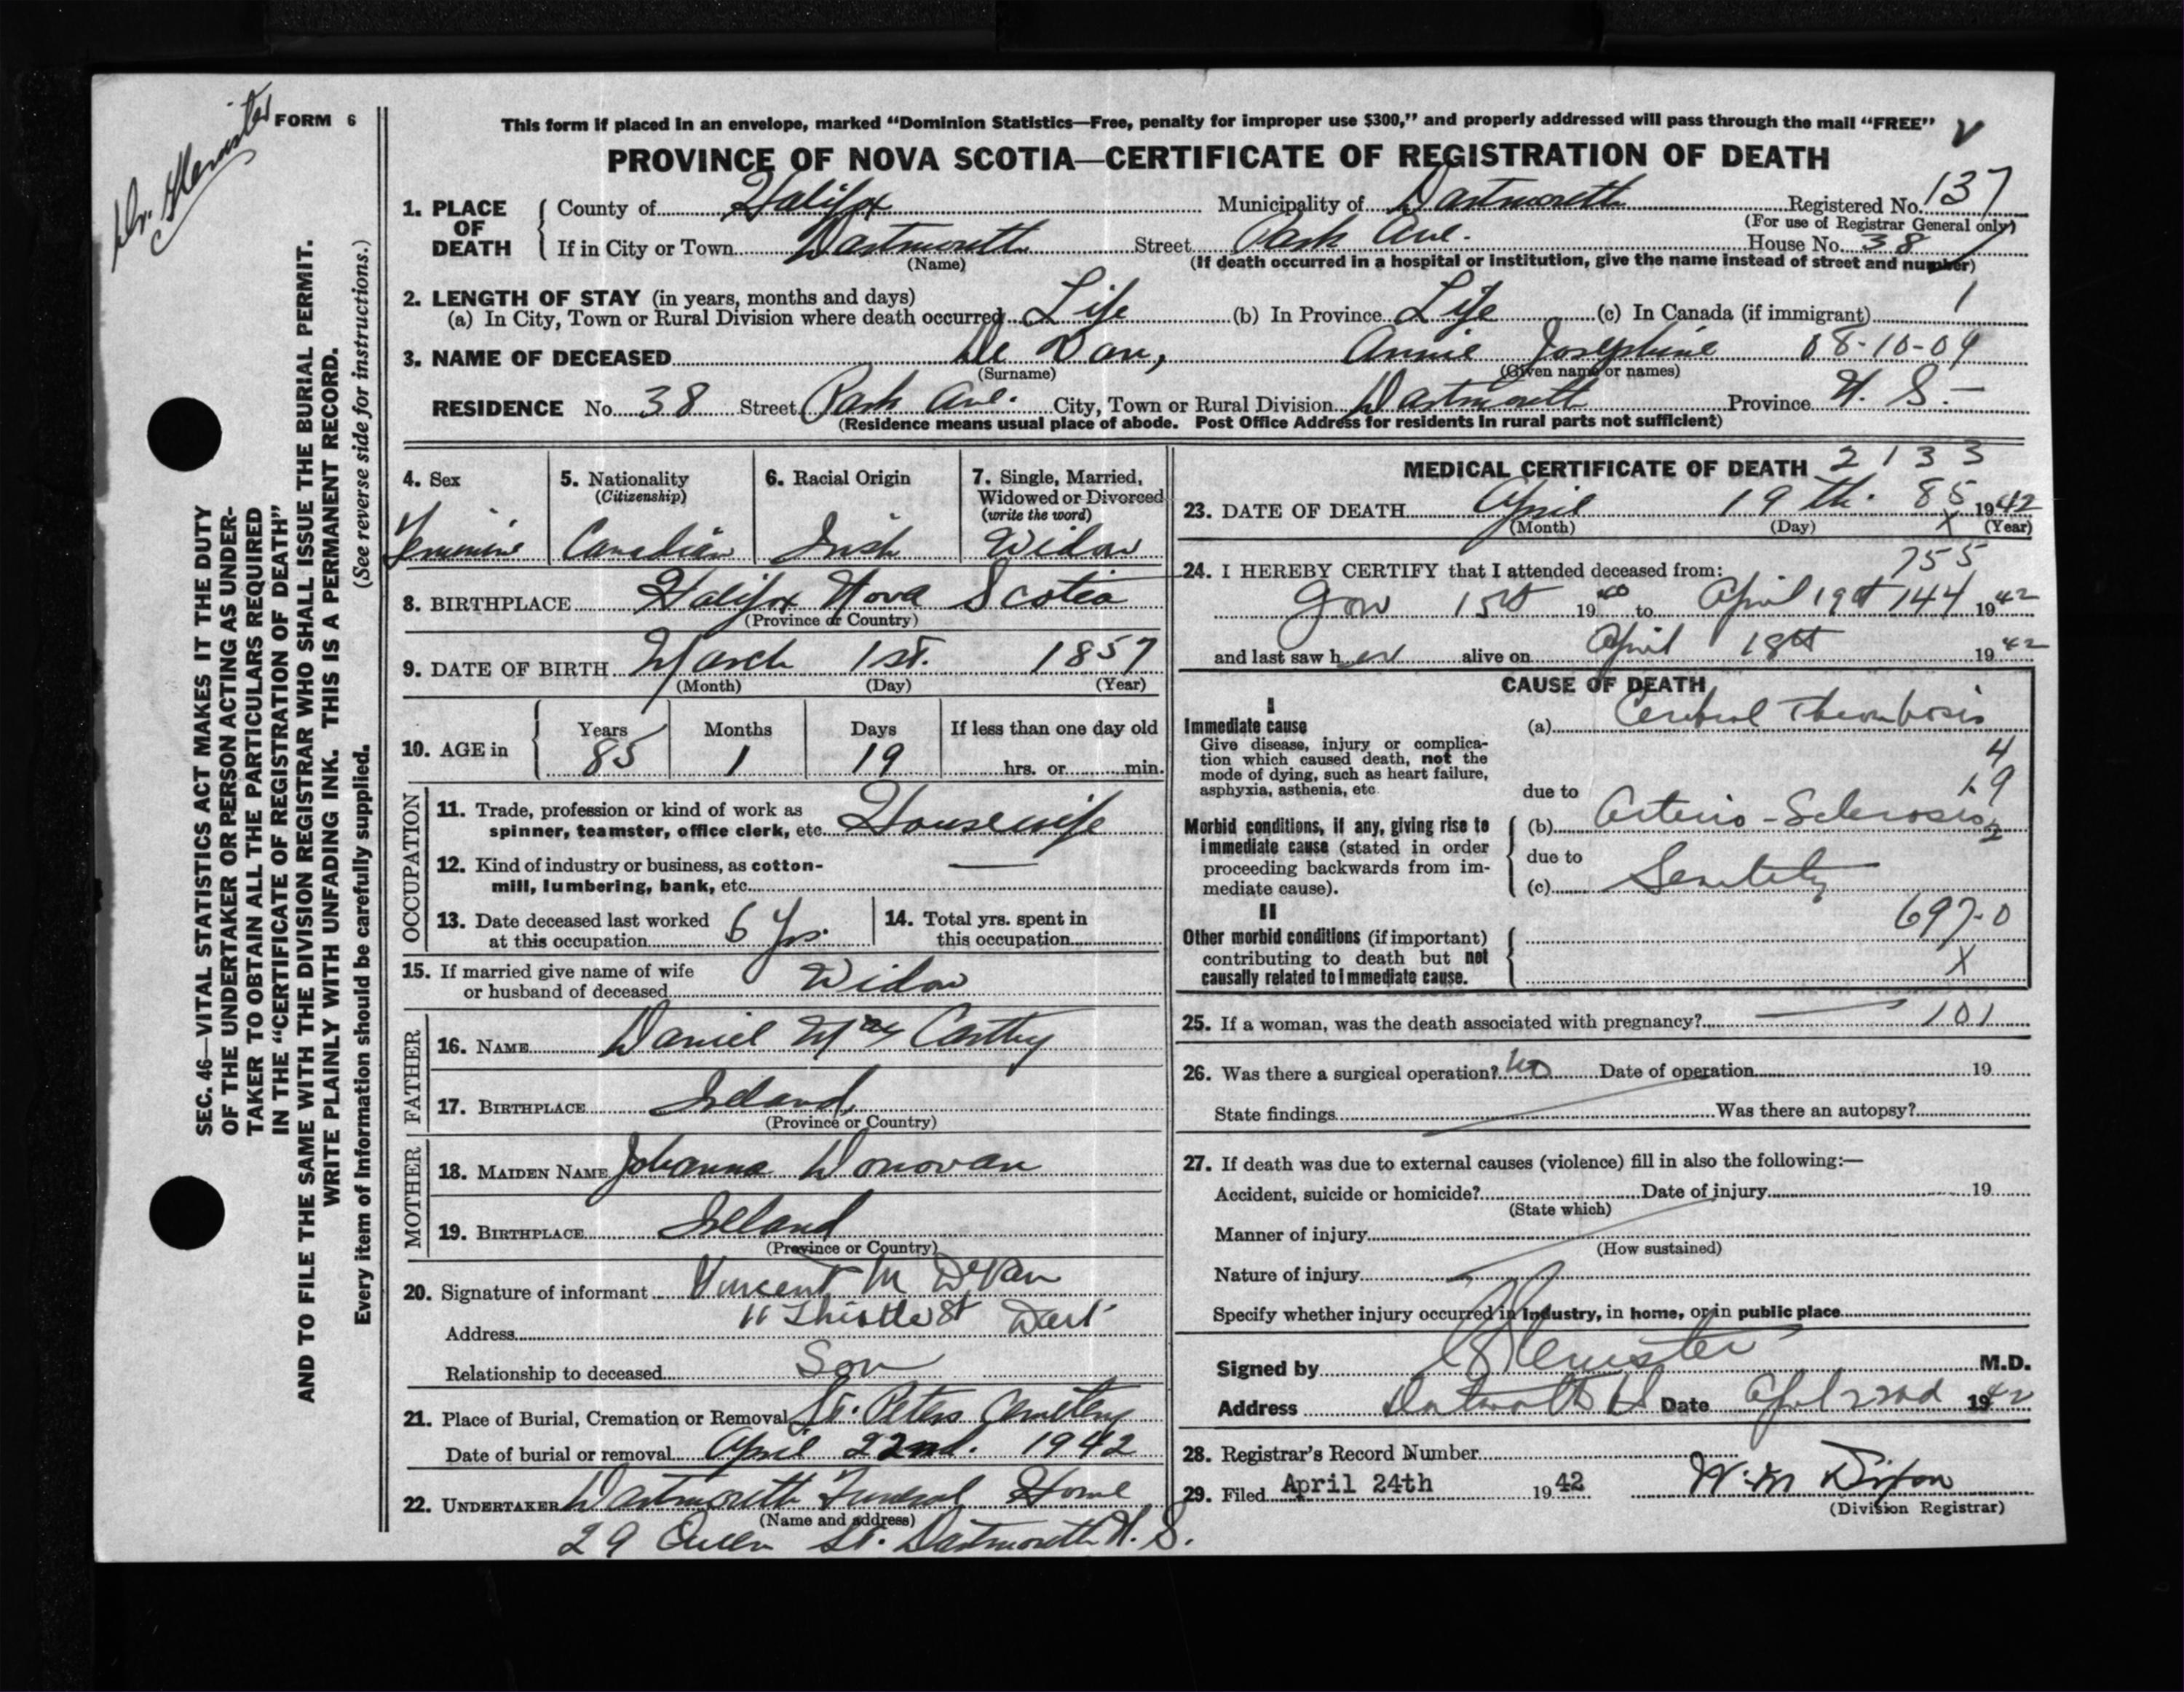 Dr. Glenister
FORM 6
This form if placed in an envelope, marked “Dominion Statistics—Free, penalty for improper use $300,” and properly addressed will pass through the mail “FREE”
PROVINCE OF NOVA SCOTIA—CERTIFICATE OF REGISTRATION OF DEATH
1. PLACE OF DEATH { County of Halifax Municipality of Dartmouth Registered No. 137
(For use of Registrar General only)
If in City or Town Dartmouth Street Park Ave. House No. 38
(Name) (If death occurred in a hospital or institution, give the name instead of street and number)
2. LENGTH OF STAY (in years, months and days)
(a) In City, Town or Rural Division where death occurred Life (b) In Province Life (c) In Canada (if immigrant) 1
3. NAME OF DECEASED De Van, Annie Josephine 08-10-04
(Surname) (Given name or names)
RESIDENCE No. 38 Street Park Ave. City, Town or Rural Division Dartmouth Province N. S.
(Residence means usual place of abode. Post Office Address for residents in rural parts not sufficient)
4. Sex 5. Nationality (Citizenship) 6. Racial Origin 7. Single, Married, Widowed or Divorced (write the word)
Feminine Canadian Irish Widow
8. BIRTHPLACE Halifax Nova Scotia
(Province or Country)
9. DATE OF BIRTH March 1st. 1857
(Month) (Day) (Year)
10. AGE in Years Months Days If less than one day old
85 1 19 hrs. or min.
OCCUPATION
11. Trade, profession or kind of work as
spinner, teamster, office clerk, etc. Housewife
12. Kind of industry or business, as cotton-
mill, lumbering, bank, etc. —
13. Date deceased last worked at this occupation 6 Yrs. 14. Total yrs. spent in this occupation
15. If married give name of wife
or husband of deceased Widow
FATHER
16. NAME Daniel Mac Carthy
17. BIRTHPLACE Ireland
(Province or Country)
MOTHER
18. MAIDEN NAME Johanna Donovan
19. BIRTHPLACE Ireland
(Province or Country)
20. Signature of informant Vincent M DeVan
Address 11 Thistle St Dart
Relationship to deceased Son
21. Place of Burial, Cremation or Removal St. Peters Cemetery
Date of burial or removal April 22nd. 1942
22. UNDERTAKER Dartmouth Funeral Home
(Name and address)
29 Queen St. Dartmouth N. S.
MEDICAL CERTIFICATE OF DEATH 2133
23. DATE OF DEATH April 19th. 85 1942
(Month) (Day) X (Year)
24. I HEREBY CERTIFY that I attended deceased from: 755
15th 1940 to April 19th 144 1942
and last saw her alive on April 18th 1942
CAUSE OF DEATH
I
Immediate cause (a) Cerebral Thrombosis
Give disease, injury or complica-
tion which caused death, not the
mode of dying, such as heart failure,
asphyxia, asthenia, etc.
4
19
2
due to
Morbid conditions, if any, giving rise to (b) Arterio-Sclerosis
immediate cause (stated in order due to
proceeding backwards from im-
mediate cause). (c) Senility
II 697-0
Other morbid conditions (if important)
contributing to death but not X
causally related to immediate cause.
25. If a woman, was the death associated with pregnancy? — 101
26. Was there a surgical operation? no Date of operation 19
State findings Was there an autopsy?
27. If death was due to external causes (violence) fill in also the following:—
Accident, suicide or homicide? Date of injury 19
(State which)
Manner of injury
(How sustained)
Nature of injury
Specify whether injury occurred in industry, in home, or in public place
Signed by Glenister M.D.
Address Dartmouth NS Date April 22nd 1942
28. Registrar's Record Number
29. Filed April 24th 1942 W. M Dixon
(Division Registrar)
SEC. 46—VITAL STATISTICS ACT MAKES IT THE DUTY
OF THE UNDERTAKER OR PERSON ACTING AS UNDER-
TAKER TO OBTAIN ALL THE PARTICULARS REQUIRED
IN THE “CERTIFICATE OF REGISTRATION OF DEATH”
AND TO FILE THE SAME WITH THE DIVISION REGISTRAR WHO SHALL ISSUE THE BURIAL PERMIT.
WRITE PLAINLY WITH UNFADING INK. THIS IS A PERMANENT RECORD.
Every item of information should be carefully supplied. (See reverse side for instructions.)